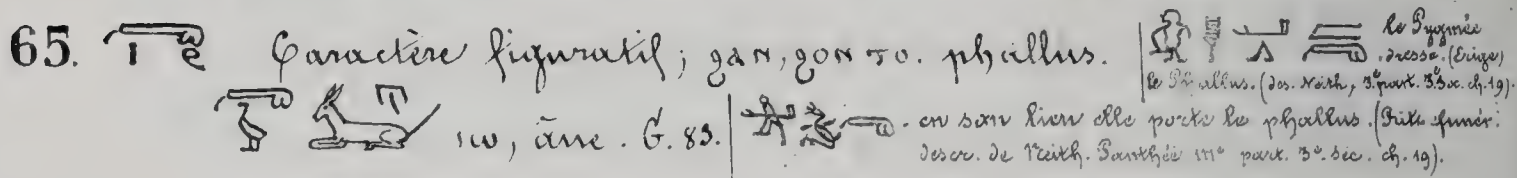 65. Caractère figuratif; ϩⲁⲛ, ϩⲟⲛ ⲧⲟ. phallus. le Pygmée
dresse. (Erige)
le Phallus. (des. Neith, 3ᵉ part. 3ᵉ Sec. ch. 19).
ⲓⲱ, âne. G. 83. en son lieu elle porte le phallus. (Rit. funér:
descr. de Neith. Panthée IIIᵉ part. 3ᵉ. Sec. ch. 19).